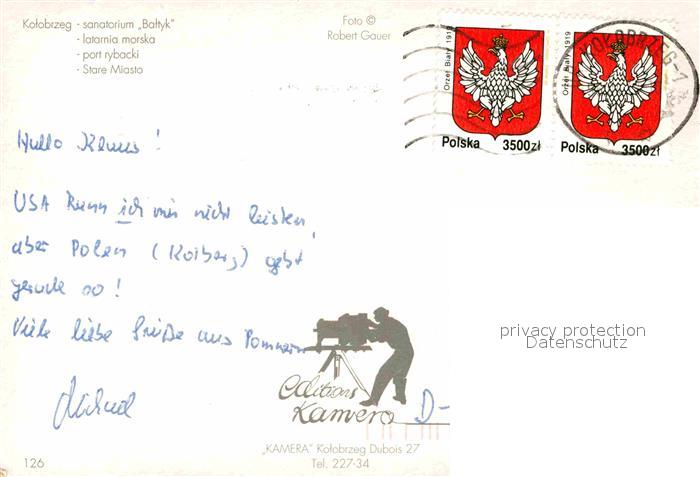 Kołobrzeg - sanatorium „Bałtyk"
- latarnia morska
- port rybacki
- Stare Miasto
Foto ©
Robert Gauer
Orzeł Biały 1919
Polska 3500zł
Orzeł Biały 1919
Polska 3500zł
KOŁOBRZEG-1
Hallo Klaus!
USA kann ich mir nicht leisten,
aber Polen (Kolberg) geht
gerade so!
Viele liebe Grüße aus Pommern
Michael
privacy protection
Datenschutz
editions
Kamera
D-
„KAMERA" Kołobrzeg Dubois 27
Tel. 227-34
126